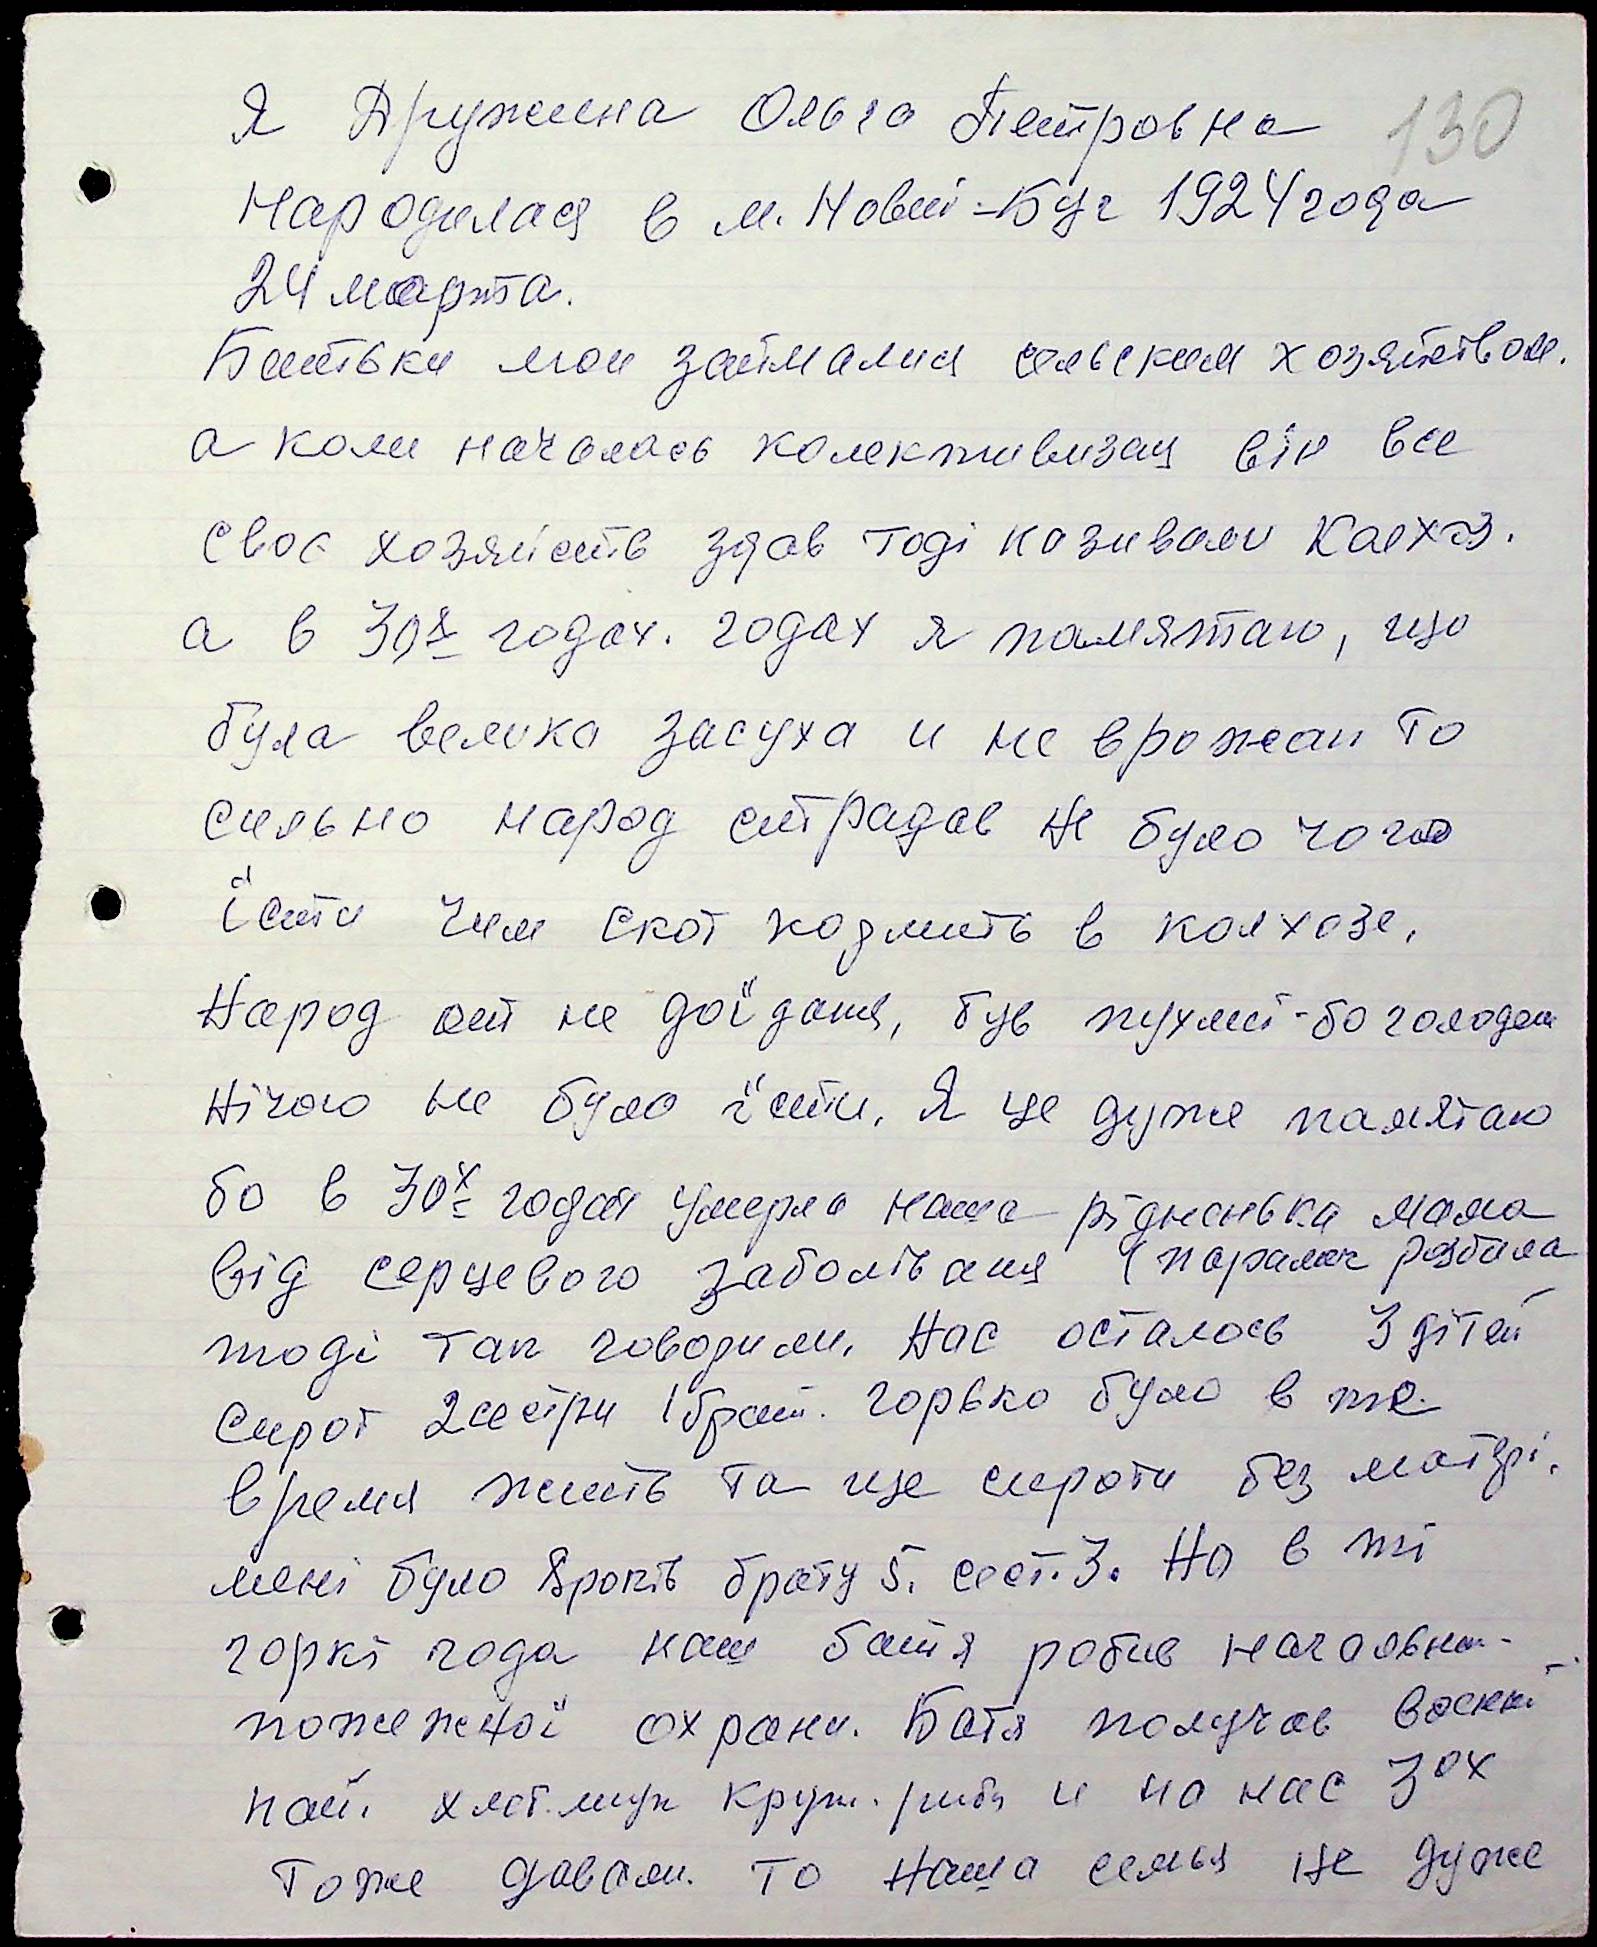 130
Я Дружина Ольга Петровна
народилася в м. Новий-Буг 1924 года
24 марта.
Батьки мои займалися сельским хозяйством.
а коли началась колективизац він все
своє хозяйств здав тоді називали Калхоз.
а в 30х годах. годах я памятаю, що
була велика засуха и не врожаи То
сильно народ страдав Не було чого
їсти чим скот кормить в колхозе.
Народ от не доїдания, був пухлий-бо голодом
нічого не було їсти. Я це дуже памятаю
бо в 30х годах умерла наша рідненька мама
від серцевого заболівания (паралич розбила
тоді так говорили. Нас осталось 3 дітей
сирот 2 сестри 1 брат. горько було в те
время жить та ще сироти без матірі.
мені було 8 років брату 5. сест. 3. Но в ті
горкі года наш батя робив начальни-
пожежної охрани. Батя получав военни
пай. хлєб. мук круп. риба и на нас 3ох
Тоже давали. То Наша семья ще дуже